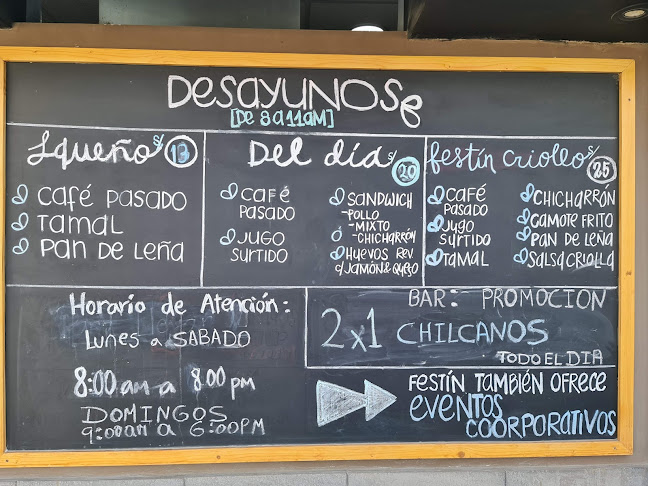 Desayunos
[De 8 a 11am]
Iqueño s/ 13
Café Pasado
Tamal
Pan de Leña
Del día s/ 20
Café
Pasado
Jugo
Surtido
Sandwich
-Pollo
-Mixto
-Chicharrón
Ó
Huevos Rev
c/Jamón & Queso
festín criollo s/ 25
Café
Pasado
Jugo
Surtido
Tamal
Chicharrón
Camote Frito
Pan de Leña
Salsa Criolla
Horario de Atención:
Lunes a Sabado
8:00 am a 8:00 pm
Domingos
9:00am a 6:00pm
Bar: Promocion
2x1 Chilcanos
Todo el dia
Festín también ofrece
eventos
coorporativos